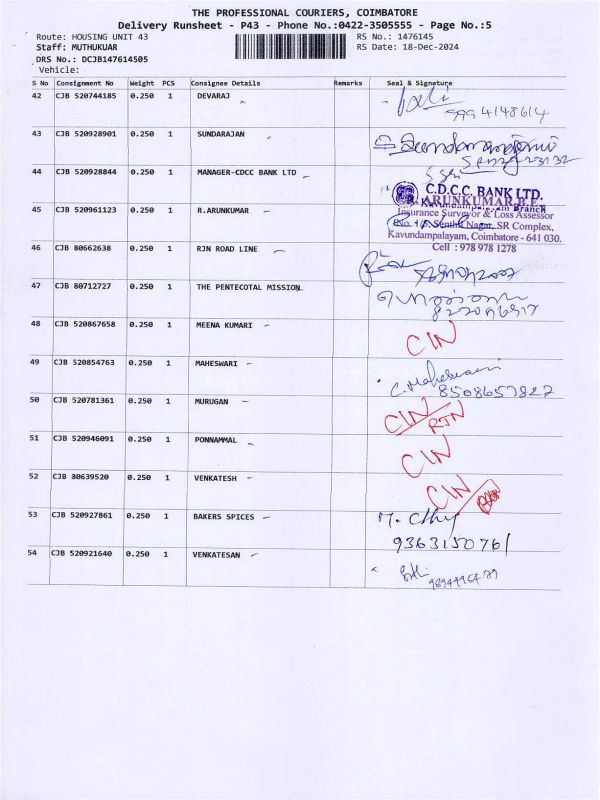 THE PROFESSIONAL COURIERS, COIMBATORE
Delivery Runsheet - P43 - Phone No.:0422-3505555 - Page No.:5
Route: HOUSING UNIT 43 RS No.: 1476145
Staff: MUTHUKUAR RS Date: 18-Dec-2024
DRS No.: DCJB147614505
Vehicle:
S No Consignment No Weight PCS Consignee Details Remarks Seal & Signature
42 CJB 520744185 0.250 1 DEVARAJ
9994148614
43 CJB 520928901 0.250 1 SUNDARAJAN
44 CJB 520928844 0.250 1 MANAGER-CDCC BANK LTD
C.D.C.C. BANK LTD.
Kavundampalayam Branch
ARUNKUMAR.B.E.
45 CJB 520961123 0.250 1 R.ARUNKUMAR
Insurance Surveyor & Loss Assessor
Senthil Nagar, SR Complex,
Kavundampalayam, Coimbatore - 641 030.
Cell : 978 978 1278
46 CJB 80662638 0.250 1 RJN ROAD LINE
47 CJB 80712727 0.250 1 THE PENTECOTAL MISSION
48 CJB 520867658 0.250 1 MEENA KUMARI CIN
49 CJB 520854763 0.250 1 MAHESWARI C. Maheswari
8508657827
50 CJB 520781361 0.250 1 MURUGAN CIN
RTN
51 CJB 520946091 0.250 1 PONNAMMAL CIN
52 CJB 80639520 0.250 1 VENKATESH CIN
53 CJB 520927861 0.250 1 BAKERS SPICES
9363150761
54 CJB 520921640 0.250 1 VENKATESAN